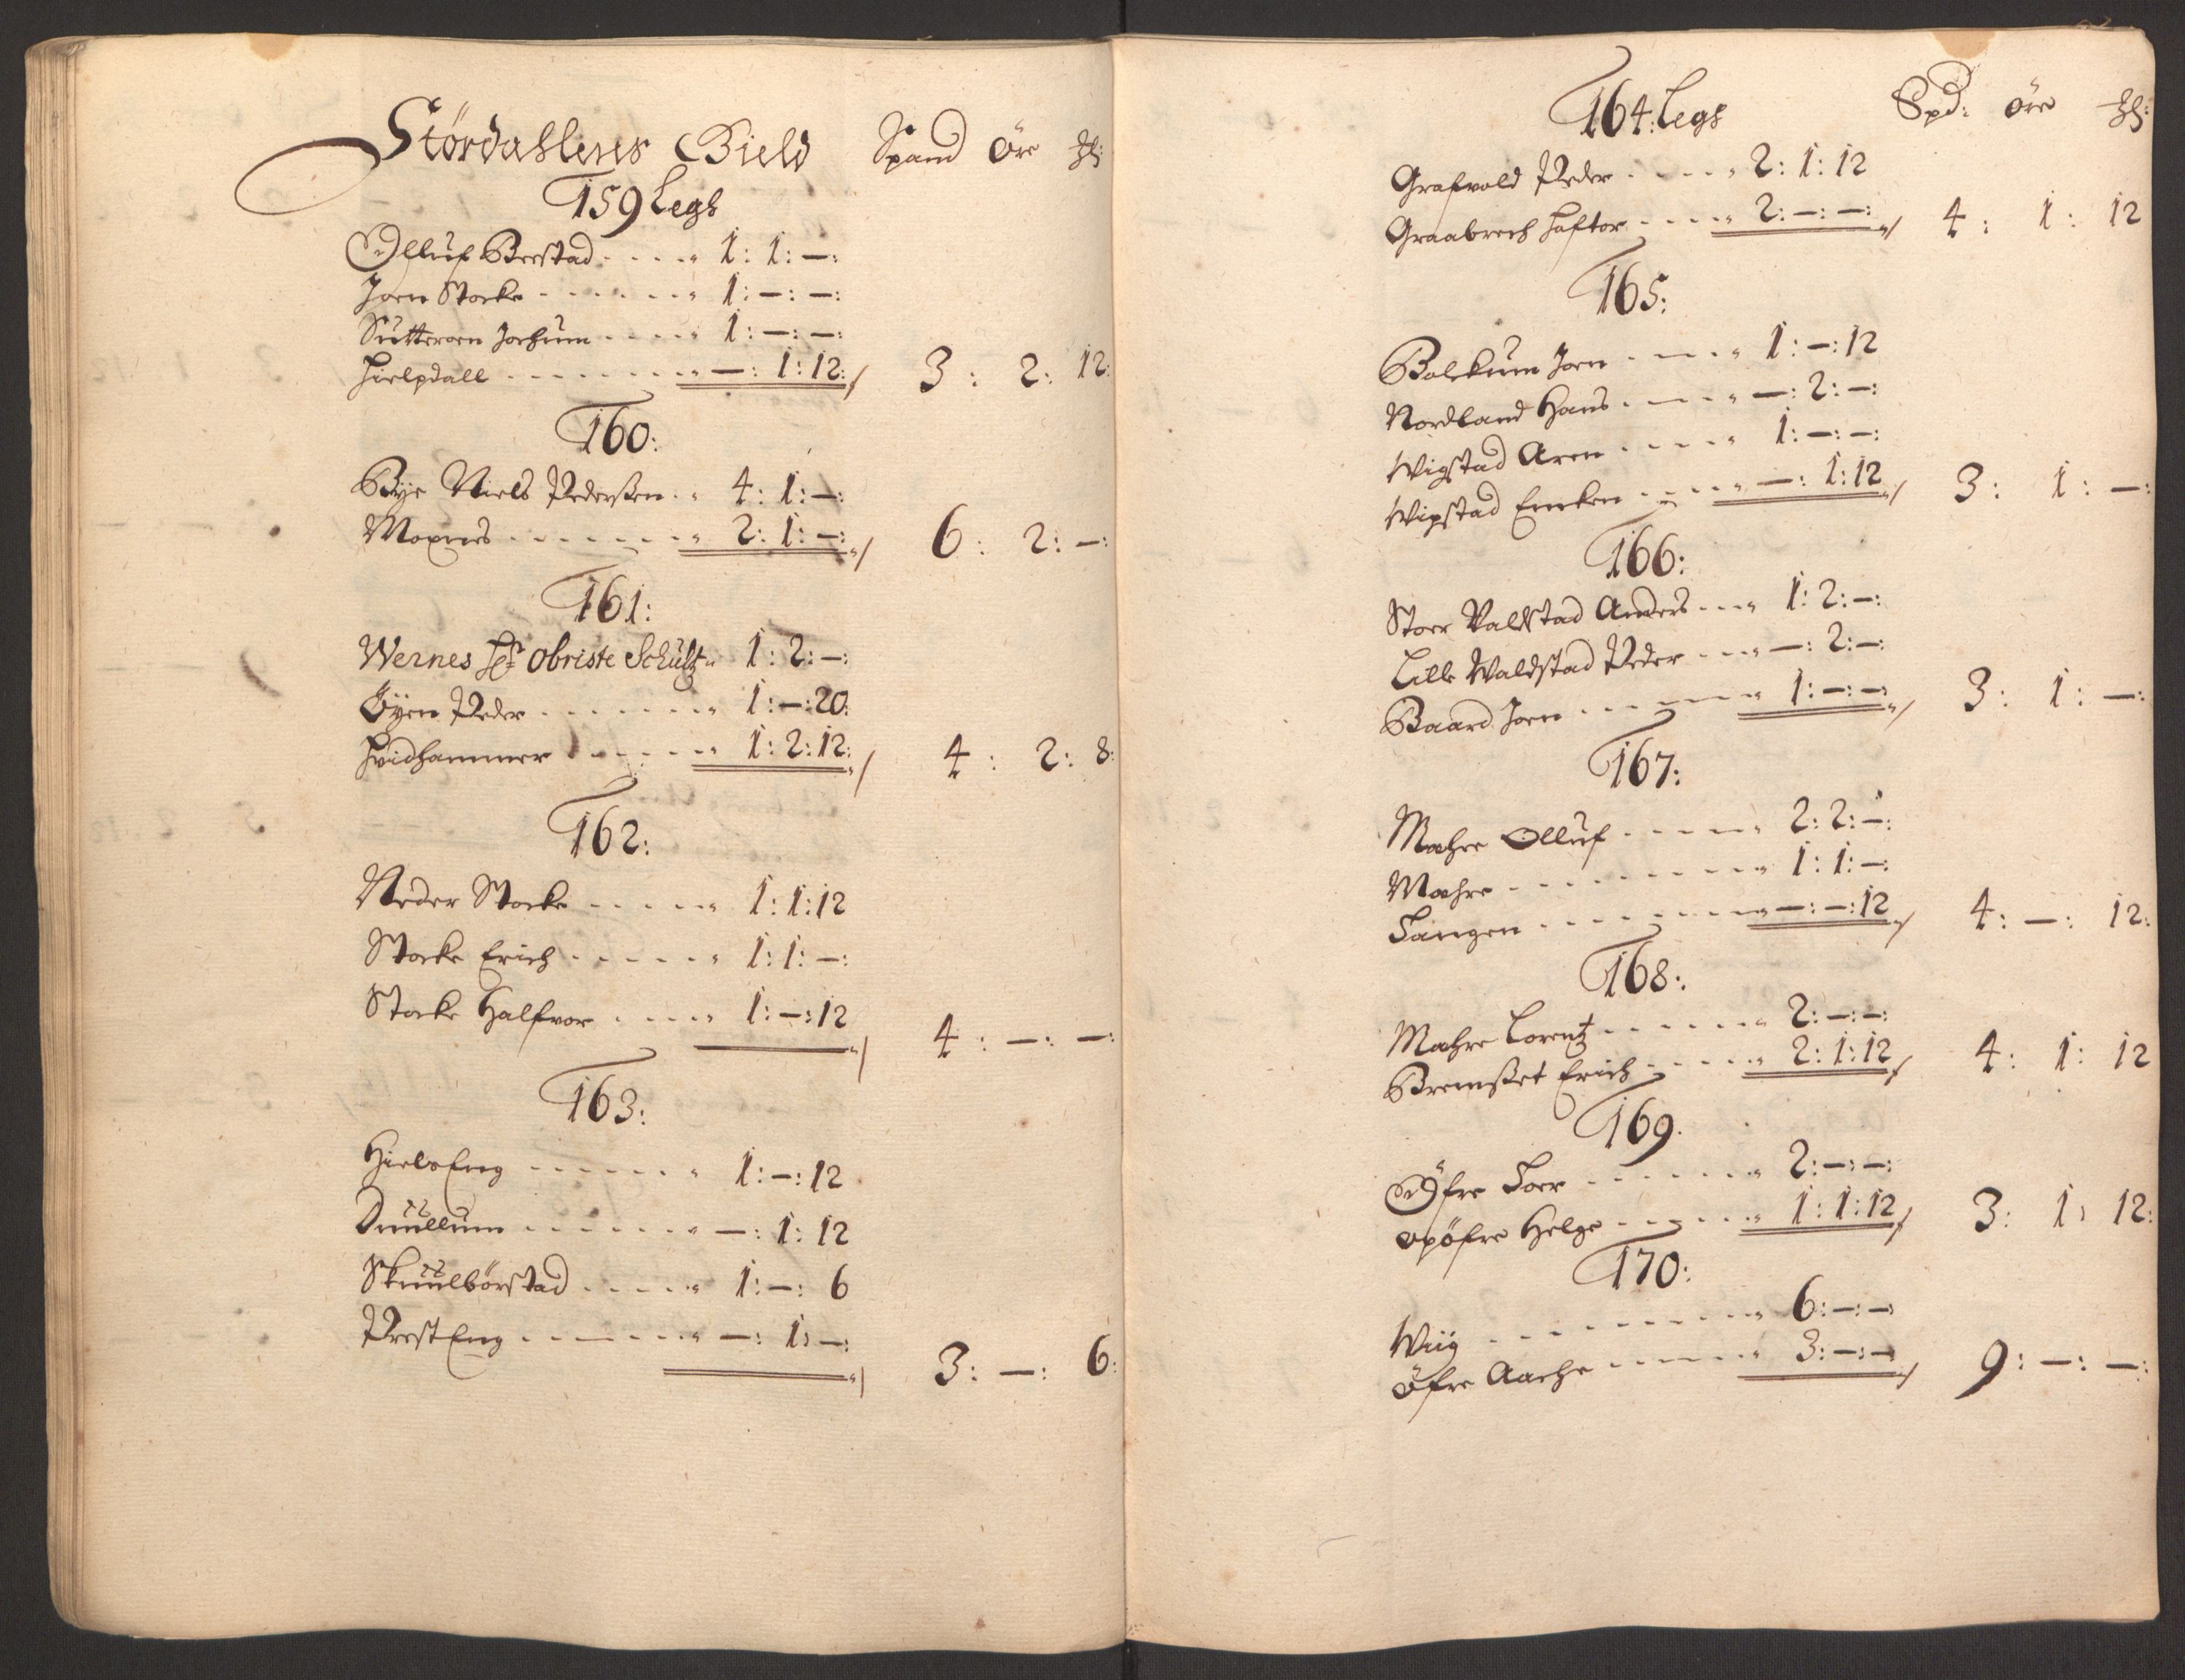 Stördahlens Gield Spand öre
159 Legh
Olluf Berstad . . . . 1: 1: —:
Joen Stocke . . . . . . 1: —: —:
Sutteroen Jochum . . . . 1: —: —:
Hielpdall . . . . . . . —: 1: 12: 3: 2: 12:
160:
Bye Niels Pederßen . . 4: 1: —:
Moxnes . . . . . . . 2: 1: —: 6: 2: —:
161:
Wernes Hr Obriste Schultz 1: 2: —:
Øyen Peder . . . . . . 1: —: 20:
Hvidhammer . . . . . 1: 2: 12: 4: 2: 8:
162:
Neder Stocke . . . . . 1: 1: 12
Stocke Erich . . . . . 1: 1: —:
Stocke Halfvor . . . . 1: —: 12 4: —: —:
163:
HielsEng . . . . . . . 1: —: 12
Duullum . . . . . . . —: 1: 12
Skuulbörstad . . . . . 1: —: 6
PrestEng . . . . . . . —: 1: —: 3: —: 6:
164: Legh Spd: öre
Grafvold Peder . . . . 2: 1: 12
Graabrech Haftor . . . . 2: —: —: 4: 1: 12
165:
Bolckum Joen . . . . 1: —: 12
Nordland Hans . . . . —: 2: —:
Wigstad Aren . . . . . 1: —: —:
Wigstad Encken . . . . —: 1: 12 3: 1: —:
166:
Stoer Valdstad Anders . . . 1: 2: —:
Lille Waldstad Peder . . . —: 2: —:
Baard Joen . . . . . . 1: —: —: 3: 1: —:
167:
Mahre Olluf . . . . . 2: 2: —:
Mahre . . . . . . . . 1: 1: —:
Langen . . . . . . . —: —: 12 4: —: 12:
168:
Mahre Lorentz . . . . . . 2: —: —:
Bremßet Erich . . . . . 2: 1: 12 4: 1: 12
169.
Öfre Foer . . . . . . 2: —: —:
opöfre Helge . . . . . 1: 1: 12 3: 1: 12:
170:
Wiig . . . . . . . . . 6: —: —:
öfre Aache . . . . . . 3: —: — 9: —: —: